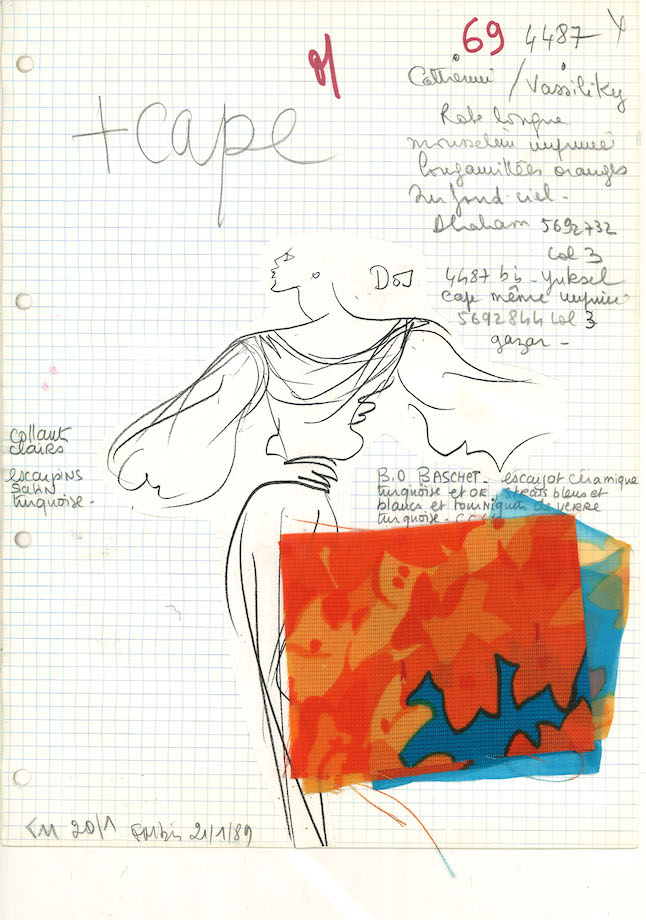 69 4487
+cape
Catherine / Vassiliky
Robe longue
mousseline imprimé
bougainvillées oranges
sur fond ciel -
Abraham 5692732
col 3
4487 bis - Yuksel
cape même imprimé
5692844 col 3
gazar -
Dos
collants
clairs
escarpins
satin
turquoise -
B.O BASCHET - escargot céramique
turquoise et OR strass bleus et
blancs et de VERRE
turquoise -
20/1 bis 21/1/89